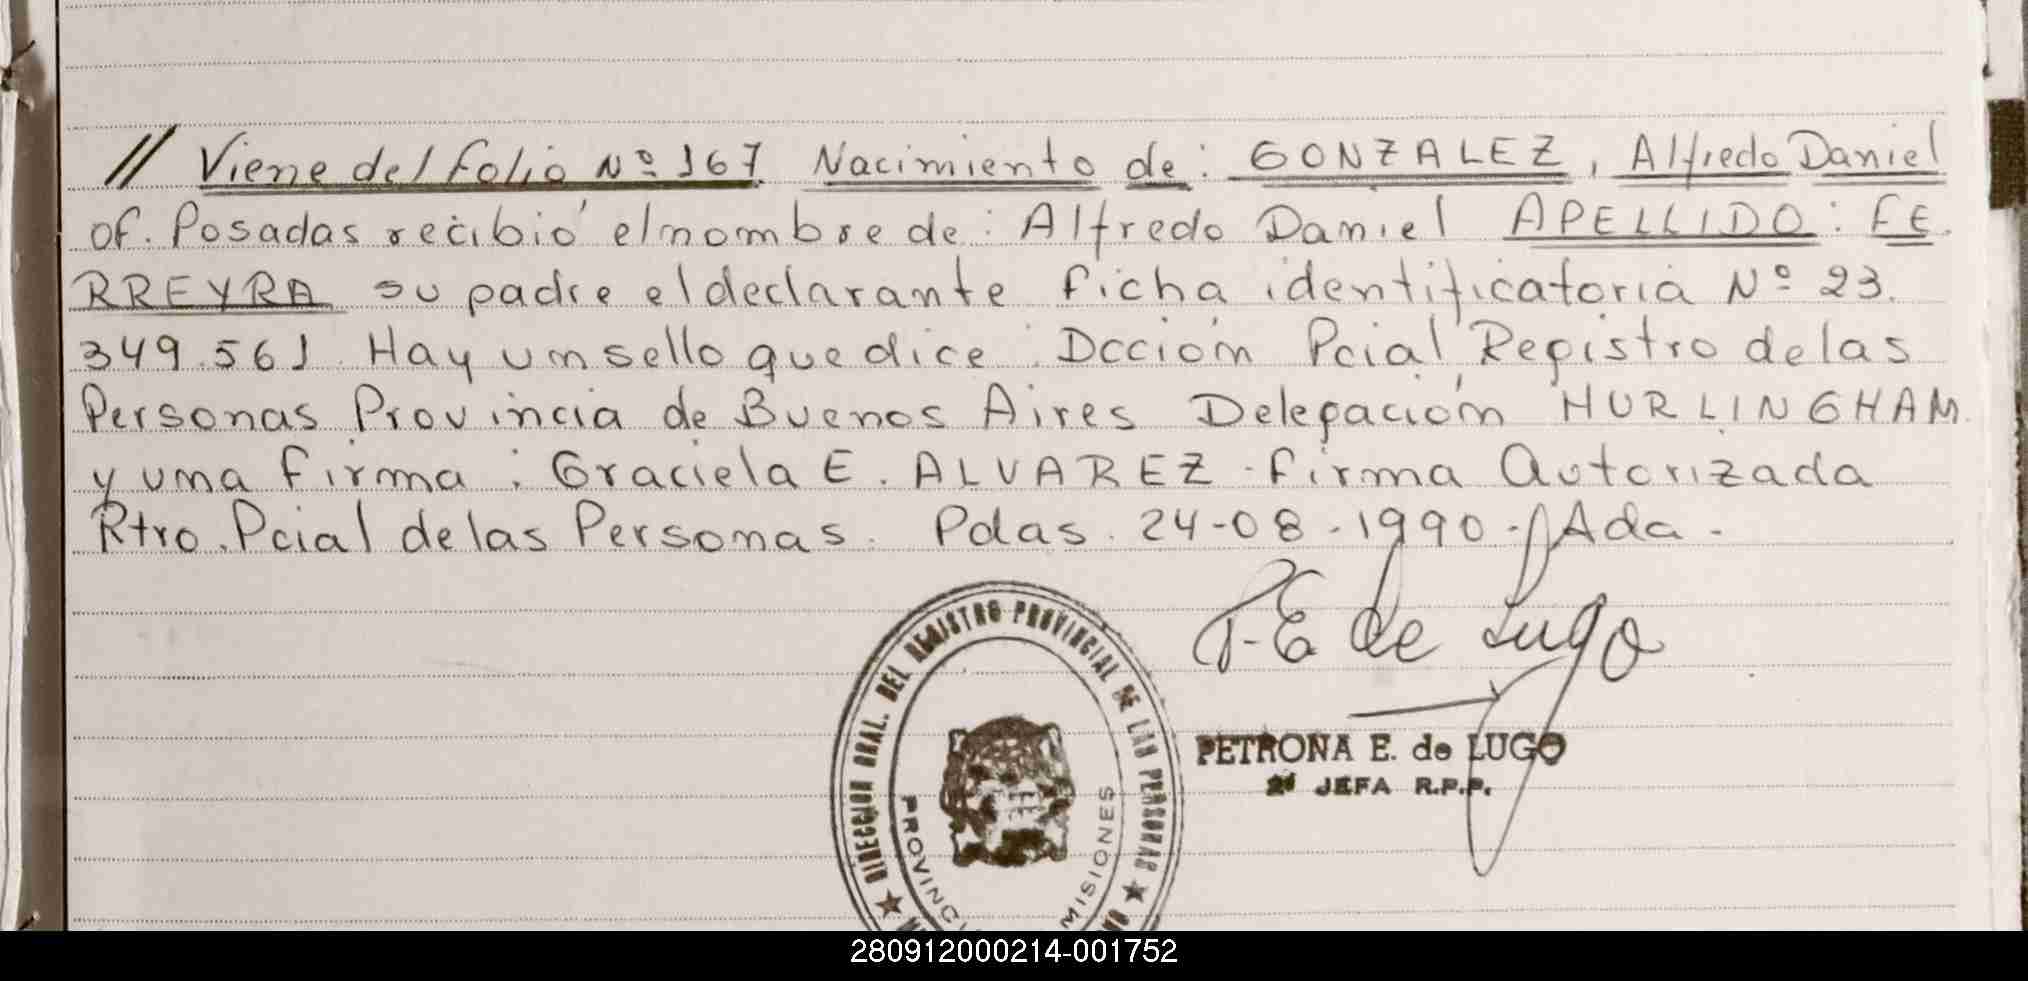 // Viene del Folio Nº 167 Nacimiento de: GONZALEZ, Alfredo Daniel
of. Posadas recibió el nombre de: Alfredo Daniel APELLIDO: FE
RREYRA su padre el declarante ficha identificatoria Nº 23.
349.561. Hay un sello que dice: Dcción Pcial Registro de las
Personas Provincia de Buenos Aires Delegación HURLINGHAM
y una firma: Graciela E. ALVAREZ - Firma Autorizada
Rtro. Pcial de las Personas. Pdas. 24-08-1990-//Ada-
P. E de Lugo
PETRONA E. de LUGO
2ª JEFA R.P.P.
DIRECCION GRAL. DEL REGISTRO PROVINCIAL DE LAS PERSONAS
MISIONES
280912000214-001752